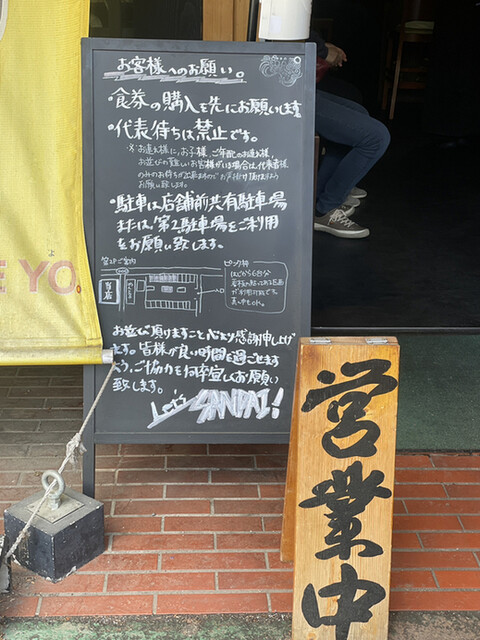 お客様へのお願い。
・食券の購入を先にお願いします
・代表待ちは禁止です。
※お連れ様に、お子様、ご年配のお連れ様、
お並びの難しいお客様がいる場合は、代表者様
のみのお待ちが出来ますので、お声掛け頂けますよう
お願い致します。
・駐車は店舗前共有駐車場
または、第2駐車場をご利用
をお願い致します。
ピンク枠
当店
お並び頂けますこと心より感謝申し上げ
ます。皆様が良い時間を過ごせます
よう、ご協力を何卒宜しくお願い
致します。
Let's
E YO.
営業中